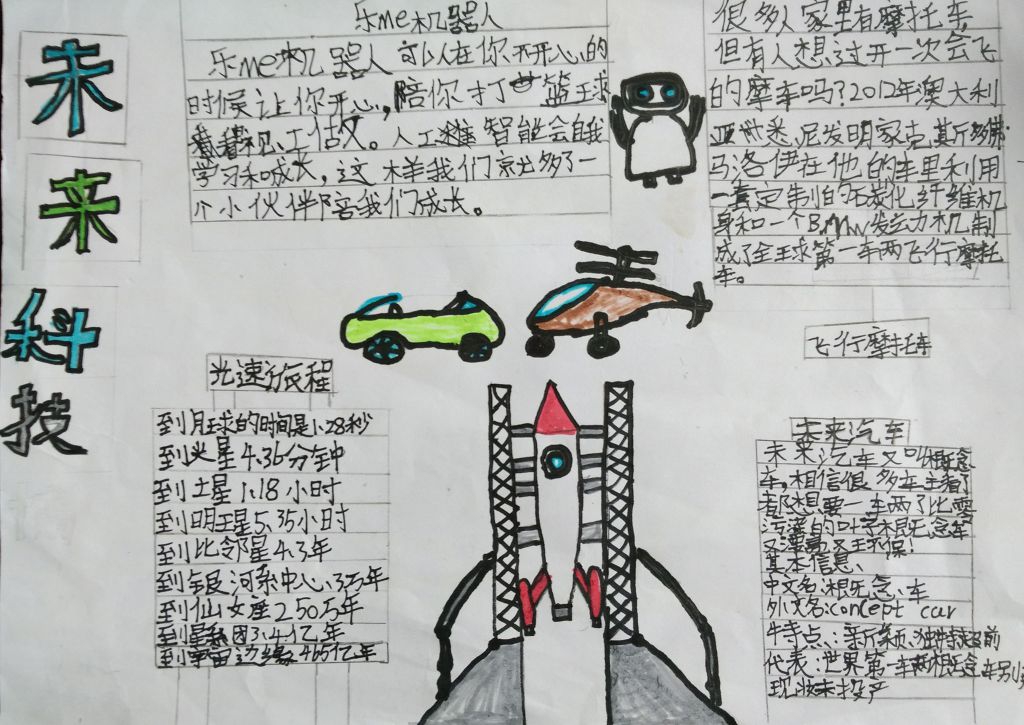 未
来
科
技
乐me机器人
乐me机器人可以在你不开心的
时候让你开心,陪你打篮球
看看视、工估文。人工智能会自我
学习和成长,这样我们就多了一
个小伙伴陪我们成长。
很多人家里有摩托车
但有人想过开一次会飞
的摩车吗?2012年澳大利
亚悉尼发明家克莫斯
马洛伊在他的车里利用
一套定制的碳化纤维机
身和一个BMW发动机制
成了全球第一车两飞行摩托
车。
飞行摩托车
光速旅程
到月球的时间是1.28秒
到火星4.36分钟
到土星1.18小时
到明王星5.35小时
到比邻星4.3年
到银河系中心3万年
到仙女座250万年
到星系团3.4亿年
到宇宙边缘465亿年
未来汽车
未来汽车又叫概念
车,相信很多车主看了
都想要一车两了比零
污染的叶子概念车
又漂亮又环保!
基本信息、
中文名:概念、车
外文名:concept car
特点:新颖、独特超前
代表:世界第一车两概念车
现状未投产